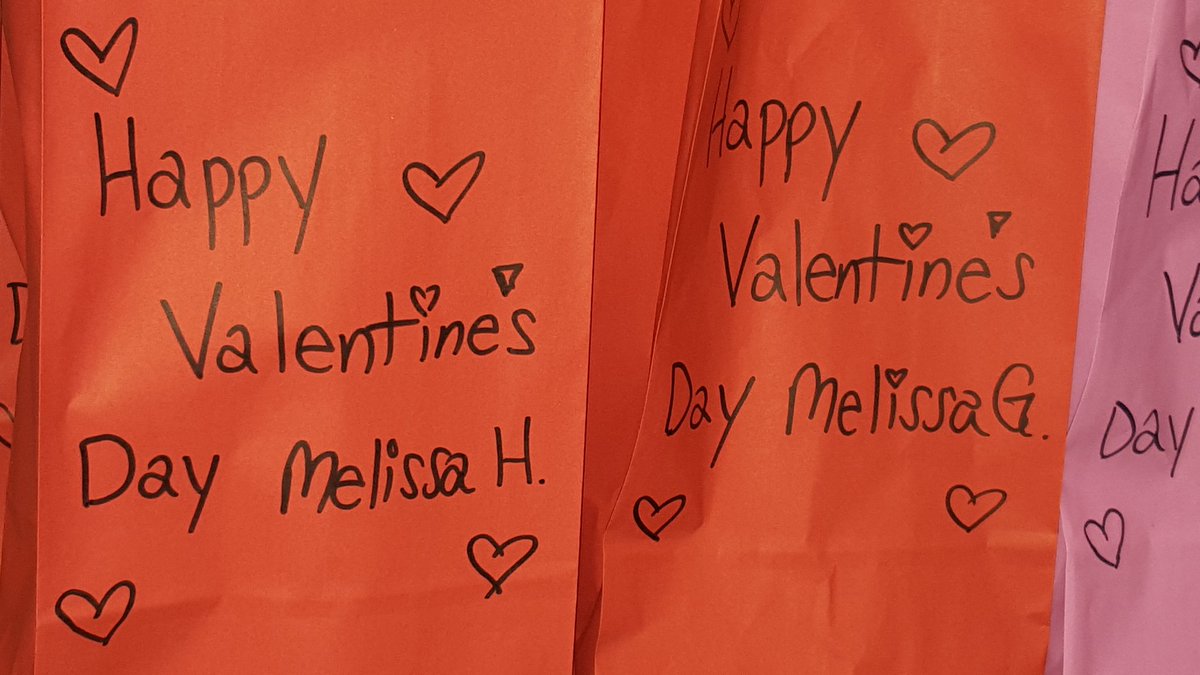 Happy
Valentine's
Day Melissa H.
Happy
Valentine's
Day Melissa G.
Day